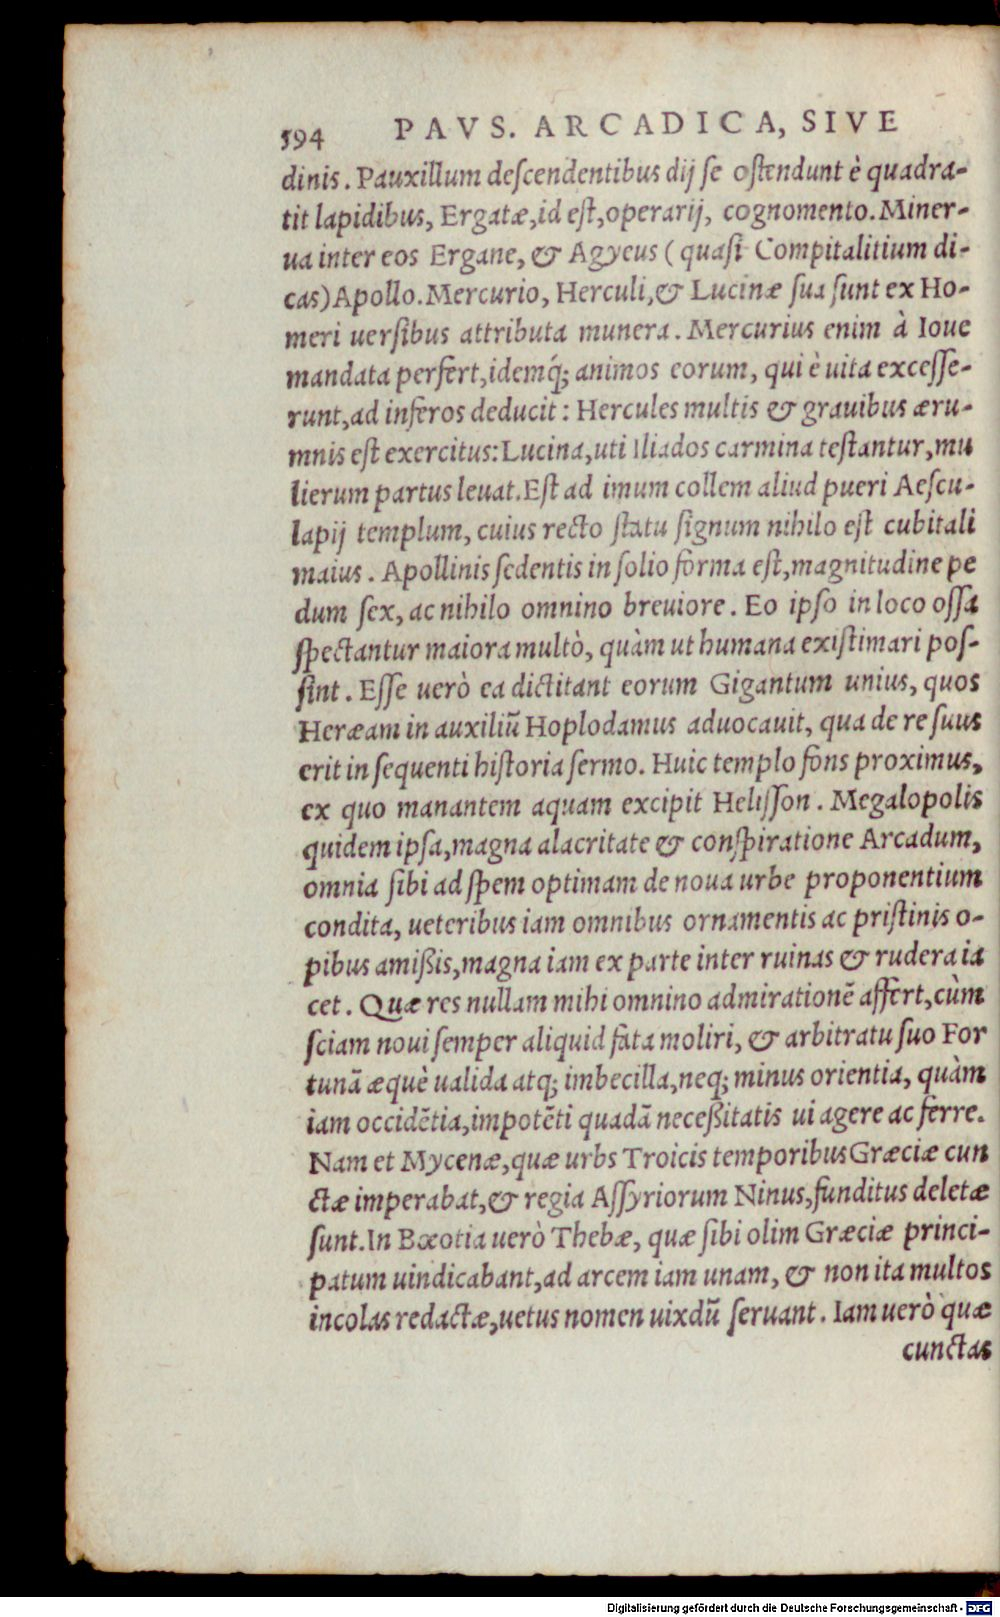 594 PAVS. ARCADICA, SIVE
dinis. Pauxillum deſcendentibus dij ſe oſtendunt è quadra-
tit lapidibus, Ergatæ, id eſt, operarij, cognomento. Miner-
ua inter eos Ergane, & Agyeus (quaſi Compitalitium di-
cas) Apollo. Mercurio, Herculi, & Lucinæ ſua ſunt ex Ho-
meri uerſibus attributa munera. Mercurius enim à Ioue
mandata perfert, idemq́; animos eorum, qui è uita exceſſe-
runt, ad inferos deducit: Hercules multis & grauibus æru-
mnis eſt exercitus: Lucina, uti Iliados carmina teſtantur, mu
lierum partus leuat. Eſt ad imum collem aliud pueri Aeſcu-
lapij templum, cuius recto ſtatu ſignum nihilo eſt cubitali
maius. Apollinis ſedentis in ſolio forma eſt, magnitudine pe
dum ſex, ac nihilo omnino breuiore. Eo ipſo in loco oſſa
ſpectantur maiora multò, quàm ut humana exiſtimari poſ-
ſint. Eſſe uerò ea dictitant eorum Gigantum unius, quos
Heræam in auxiliũ Hoplodamus aduocauit, qua de re ſuus
erit in ſequenti hiſtoria ſermo. Huic templo fons proximus,
ex quo manantem aquam excipit Heliſſon. Megalopolis
quidem ipſa, magna alacritate & conſpiratione Arcadum,
omnia ſibi ad ſpem optimam de noua urbe proponentium
condita, ueteribus iam omnibus ornamentis ac priſtinis o-
pibus amißis, magna iam ex parte inter ruinas & rudera ia
cet. Quæ res nullam mihi omnino admirationẽ affert, cùm
ſciam noui ſemper aliquid fata moliri, & arbitratu ſuo For
tunã æquè ualida atq; imbecilla, neq; minus orientia, quàm
iam occidẽtia, impotẽti quadã neceßitatis ui agere ac ferre.
Nam et Mycenæ, quæ urbs Troicis temporibus Græciæ cun
ctæ imperabat, & regia Aſſyriorum Ninus, funditus deletæ
ſunt. In Bœotia uerò Thebæ, quæ ſibi olim Græciæ princi-
patum uindicabant, ad arcem iam unam, & non ita multos
incolas redactæ, uetus nomen uixdũ ſeruant. Iam uerò quæ
cunctas
Digitalisierung gefördert durch die Deutsche Forschungsgemeinschaft - DFG